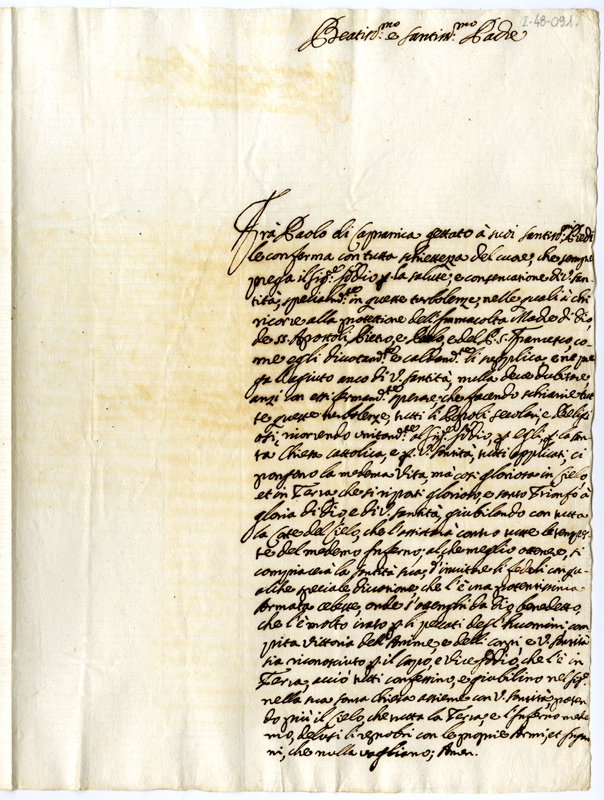 2-48-091.
Beatiss.mo e Santiss.mo Padre
Frà Paolo di Capranica gettato à suoi Santiss.mi Piedi
le conferma con tutta schiettezza del cuore, che sempre
prega il Sig.re Iddio p la salute, e conservatione di V. San-
tità, specialm.te in queste turbolenze, nelle quali à chi
ricorre alla protettione dell'Immacolta Madre di Dio,
de SS. Apostoli Pietro, e Paolo, e del P. S. Francesco, co-
me egli divotam.te e caldam.te li supplica, e ne pre
ga l'agiuto anco di V. Santità, nulla deve dubitare,
anzi con essi fermam.te sperare, che facendo schiarire tut
te queste turbolenze, tutti li Popoli secolari, e Religi
osi, ricorrendo unitam.te al Sig.re Iddio, p egli p la san
ta Chiesa Cattolica, e p V. Santità, tutti applicati, ci
ponfono la medema Vita, ma così gloriosa in Cielo,
et in Terra, che si riporti glorioso, e santo Trionfo à
gloria di Dio, e di V. Santità, giubilando con tutta
la Corte del Cielo, che l'assisterà contro tutte le tempes
te del medemo Inferno; al che meglio ottenere, si
compiacerà la Santità sua, d'invitare li fedeli con qu
alche speciale divotione, che l'è una potentissima
Armata celeste, onde s'ottenghi da Dio benedetto,
che l'è molto irato p li peccati degl'huomini, com
pita Vittoria dell'Anime, e delli corpi, e V. Santità
sia riconosciuto p il Capo, e Vice Iddio, che l'è in
Terra, acciò tutti confessino, e giubilino nel Sig.re
nella sua santa Chiesa assieme con V. Santità, poten
do più il Cielo, che tutta la Terra, e l'Inferno mede
mo, delusi li reprobi con le proprie Armi, et
ni, che nulla vagliano; Amen.